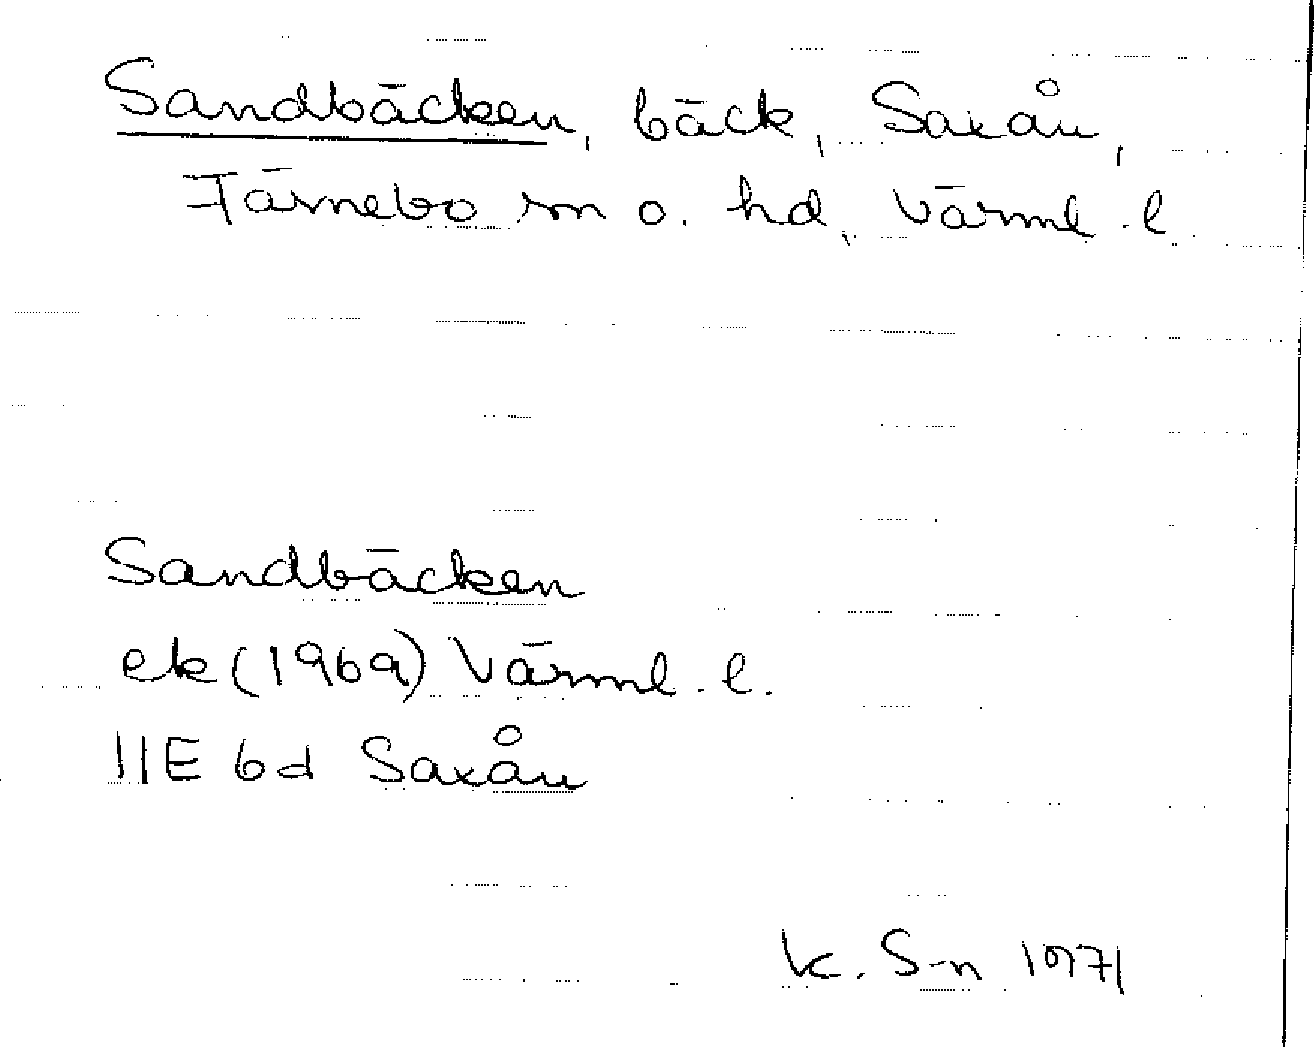 Sandbäcken, bäck, Saxån,
Färnebo sn o. hd, Värml. l.
Sandbäcken
ek (1969) Värml. l.
11E 6d Saxån
K. S-n 1971